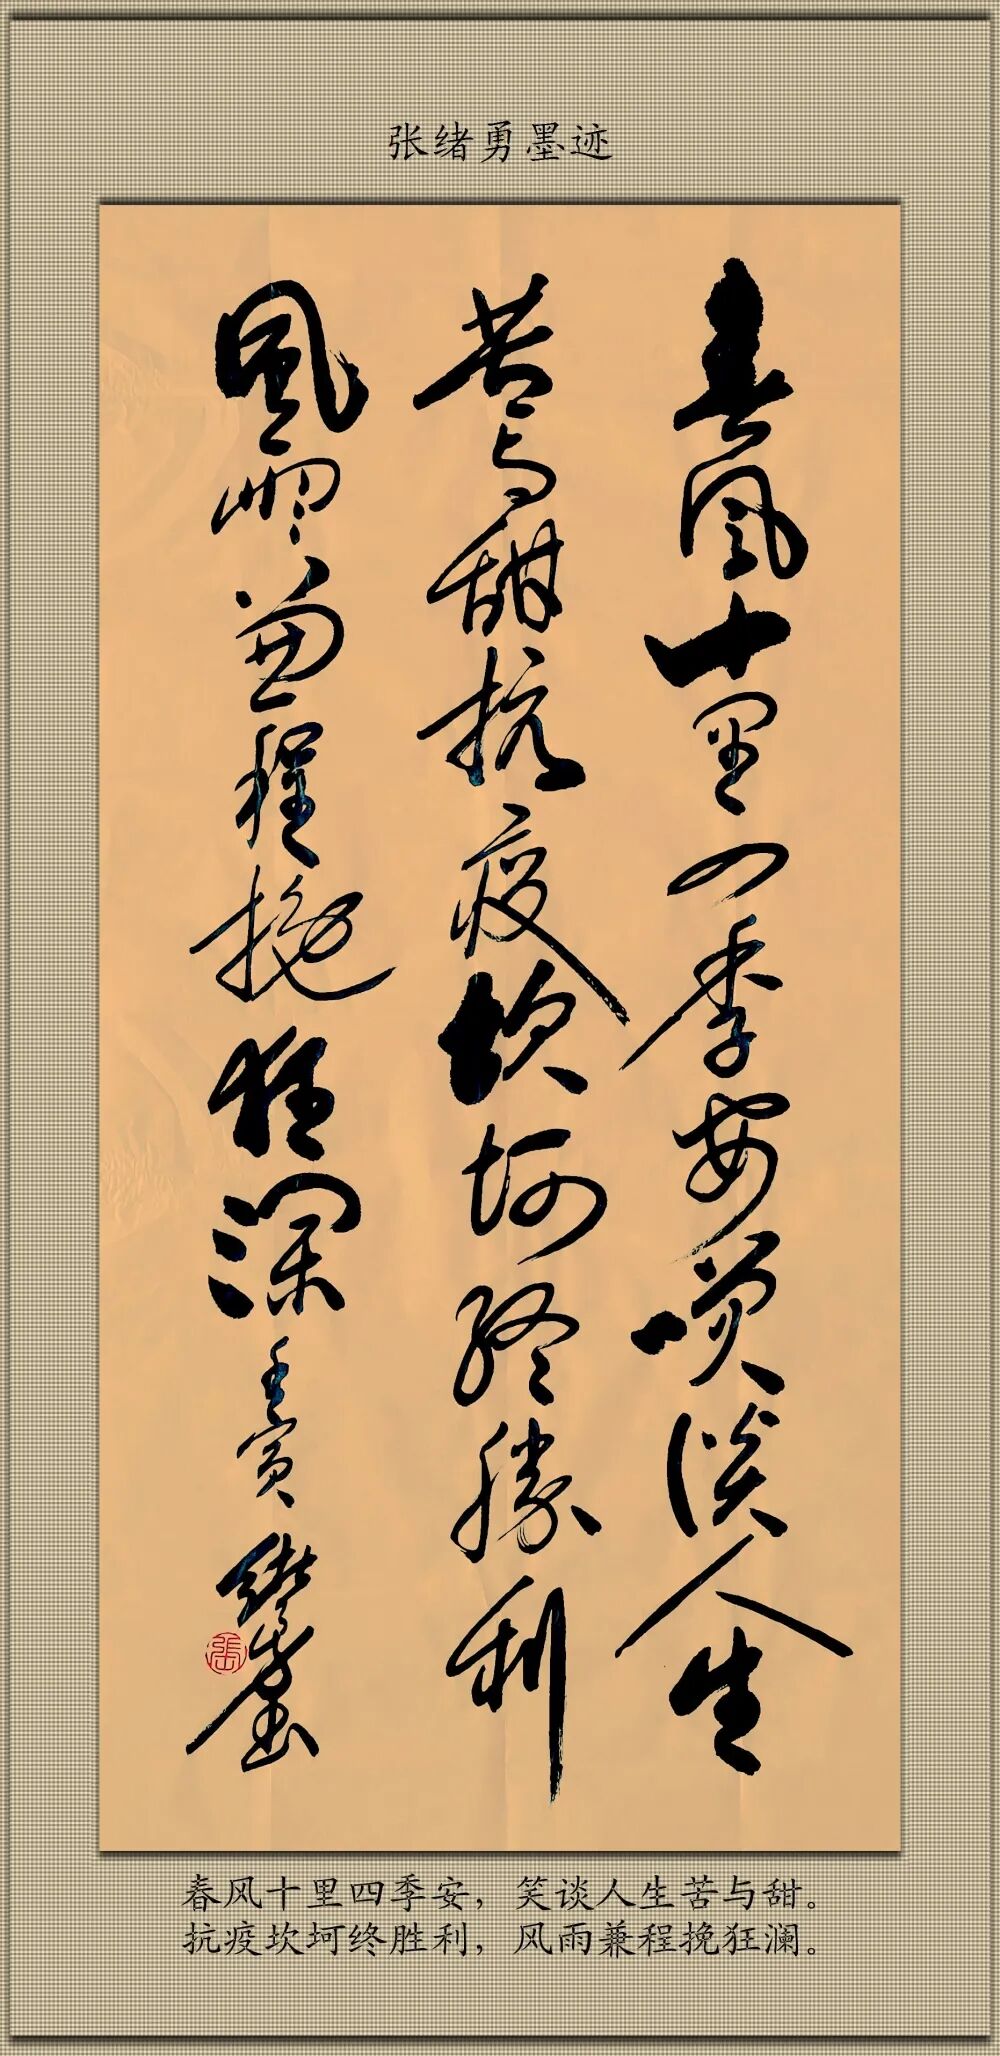 张绪勇墨迹
春风十里四季安笑谈人生
苦与甜抗疫坎坷终勝利
風雨兼程挽狂澜壬寅绪勇書
張
春风十里四季安，笑谈人生苦与甜。
抗疫坎坷终胜利，风雨兼程挽狂澜。